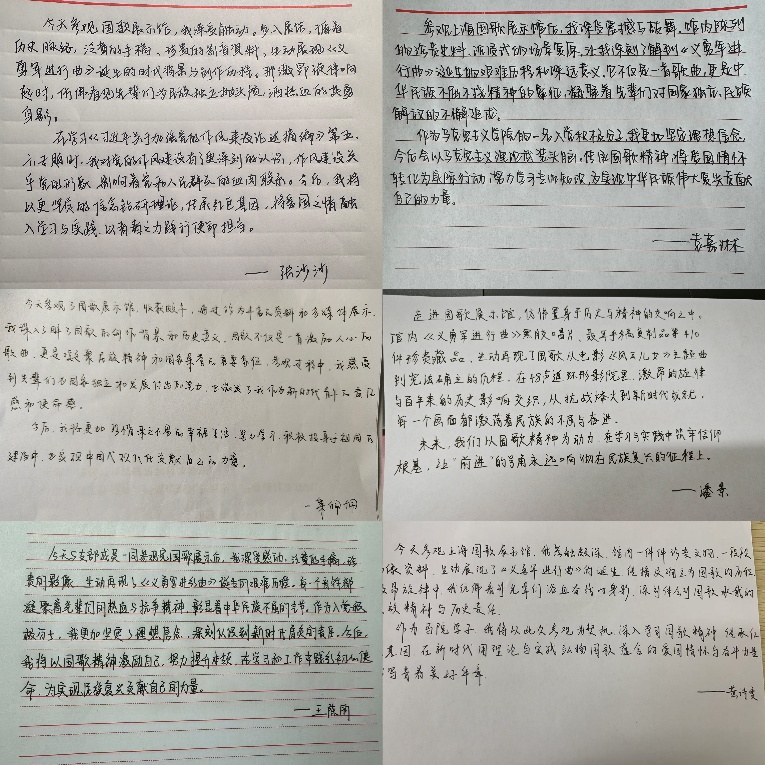 今天参观国歌展示馆，我深受触动。步入展馆，循着
历史脉络，泛黄的手稿、珍贵的影音资料，生动展现《义
勇军进行曲》诞生的时代背景与创作历程。那激昂旋律响
起时，仿佛看见先辈们为民族独立抛头颅、洒热血的英勇
身影。
在学习《习近平关于加强党的作风建设论述摘编》第五、
六专题时，我对党的作风建设有了更深刻的认识，作风建设关
乎党的形象，影响着党和人民群众的血肉联系。今后，我将
以更坚定的信念钻研理论，传承红色基因，将爱国之情融
入学习与实践，以青春之力践行使命担当。
——张沙沙
参观上海国歌展示馆后，我深受震撼与鼓舞。馆内陈列
的珍贵史料、沉浸式的场景复原，让我深刻了解到《义勇军进
行曲》诞生的艰难历程和深远意义。它不仅是一首歌曲，更是中
华民族不屈不挠精神的象征，凝聚着先辈们对国家独立、民族
解放的不懈追求。
作为马克思主义学院的一名入党积极分子，我更加坚定理想信念，
今后会从马克思主义理论武装头脑，传承国歌精神，将爱国情怀
转化为实际行动，努力学习专业知识，为实现中华民族伟大复兴贡献
自己的力量。
——袁嘉林
今天参观了国歌展示馆，收获颇丰，通过馆内丰富的资料和多媒体展示，
我深入了解了国歌的创作背景和历史意义。国歌不仅是一首激励人心的
歌曲，更是凝聚民族精神和国家荣誉的重要象征。参观过程中，我感受
到先辈们为国家独立和发展付出的努力，也激发了我作为新时代青年的责任
感和使命感。
今后，我将更加珍惜来之不易的幸福生活，努力学习，积极投身于祖国的
建设中，为实现中国式现代化贡献自己的力量。
走进国歌展示馆，仿佛置身于历史与精神的交响之中。
馆内《义勇军进行曲》黑胶唱片、聂耳手稿复制品等410
件珍贵藏品，生动再现了国歌从电影《风云儿女》主题曲
到宪法确立的历程。在拐声道环形影院里，激昂的旋律
与百年来的历史影响交织，从抗战烽火到新时代成就，
每一个画面都激荡着民族的不屈与奋进。
未来，我们以国歌精神为动力，在学习与实践中筑牢信仰
根基，让“前进”的号角永远响彻在民族复兴的征程上。
——潘景
今天与支部成员一同参观完国歌展示后，我深受感动，泛黄的手稿、珍
贵的影像，生动再现了《义勇军进行曲》诞生的艰难历程，每一个音符都
凝聚着先辈们的热血与抗争精神，彰显着中华民族不屈的气节。作为入党积
极分子，我更加坚定了理想信念，深刻认识到新时代肩负的责任。今后，
我将以国歌精神激励自己，努力提升本领，在学习和工作中践行初心使
命，为实现民族复兴贡献自己的力量。
——王荫雨
今天参观上海国歌展示馆，我感触颇深。馆内一件件珍贵文物、一段段
像资料，生动展现了《义勇军进行曲》的诞生、传播及确立为国歌的历程
昂旋律中，我仿佛看到先辈们浴血奋战的身影，深刻体会到国歌承载的
族精神与历史责任。
作为马院学子，我将以此次参观为契机，深入学习国歌精神，继承红
基因，在新时代用理论与实践弘扬国歌蕴含的爱国情怀与奋斗力量
写青春美好年华